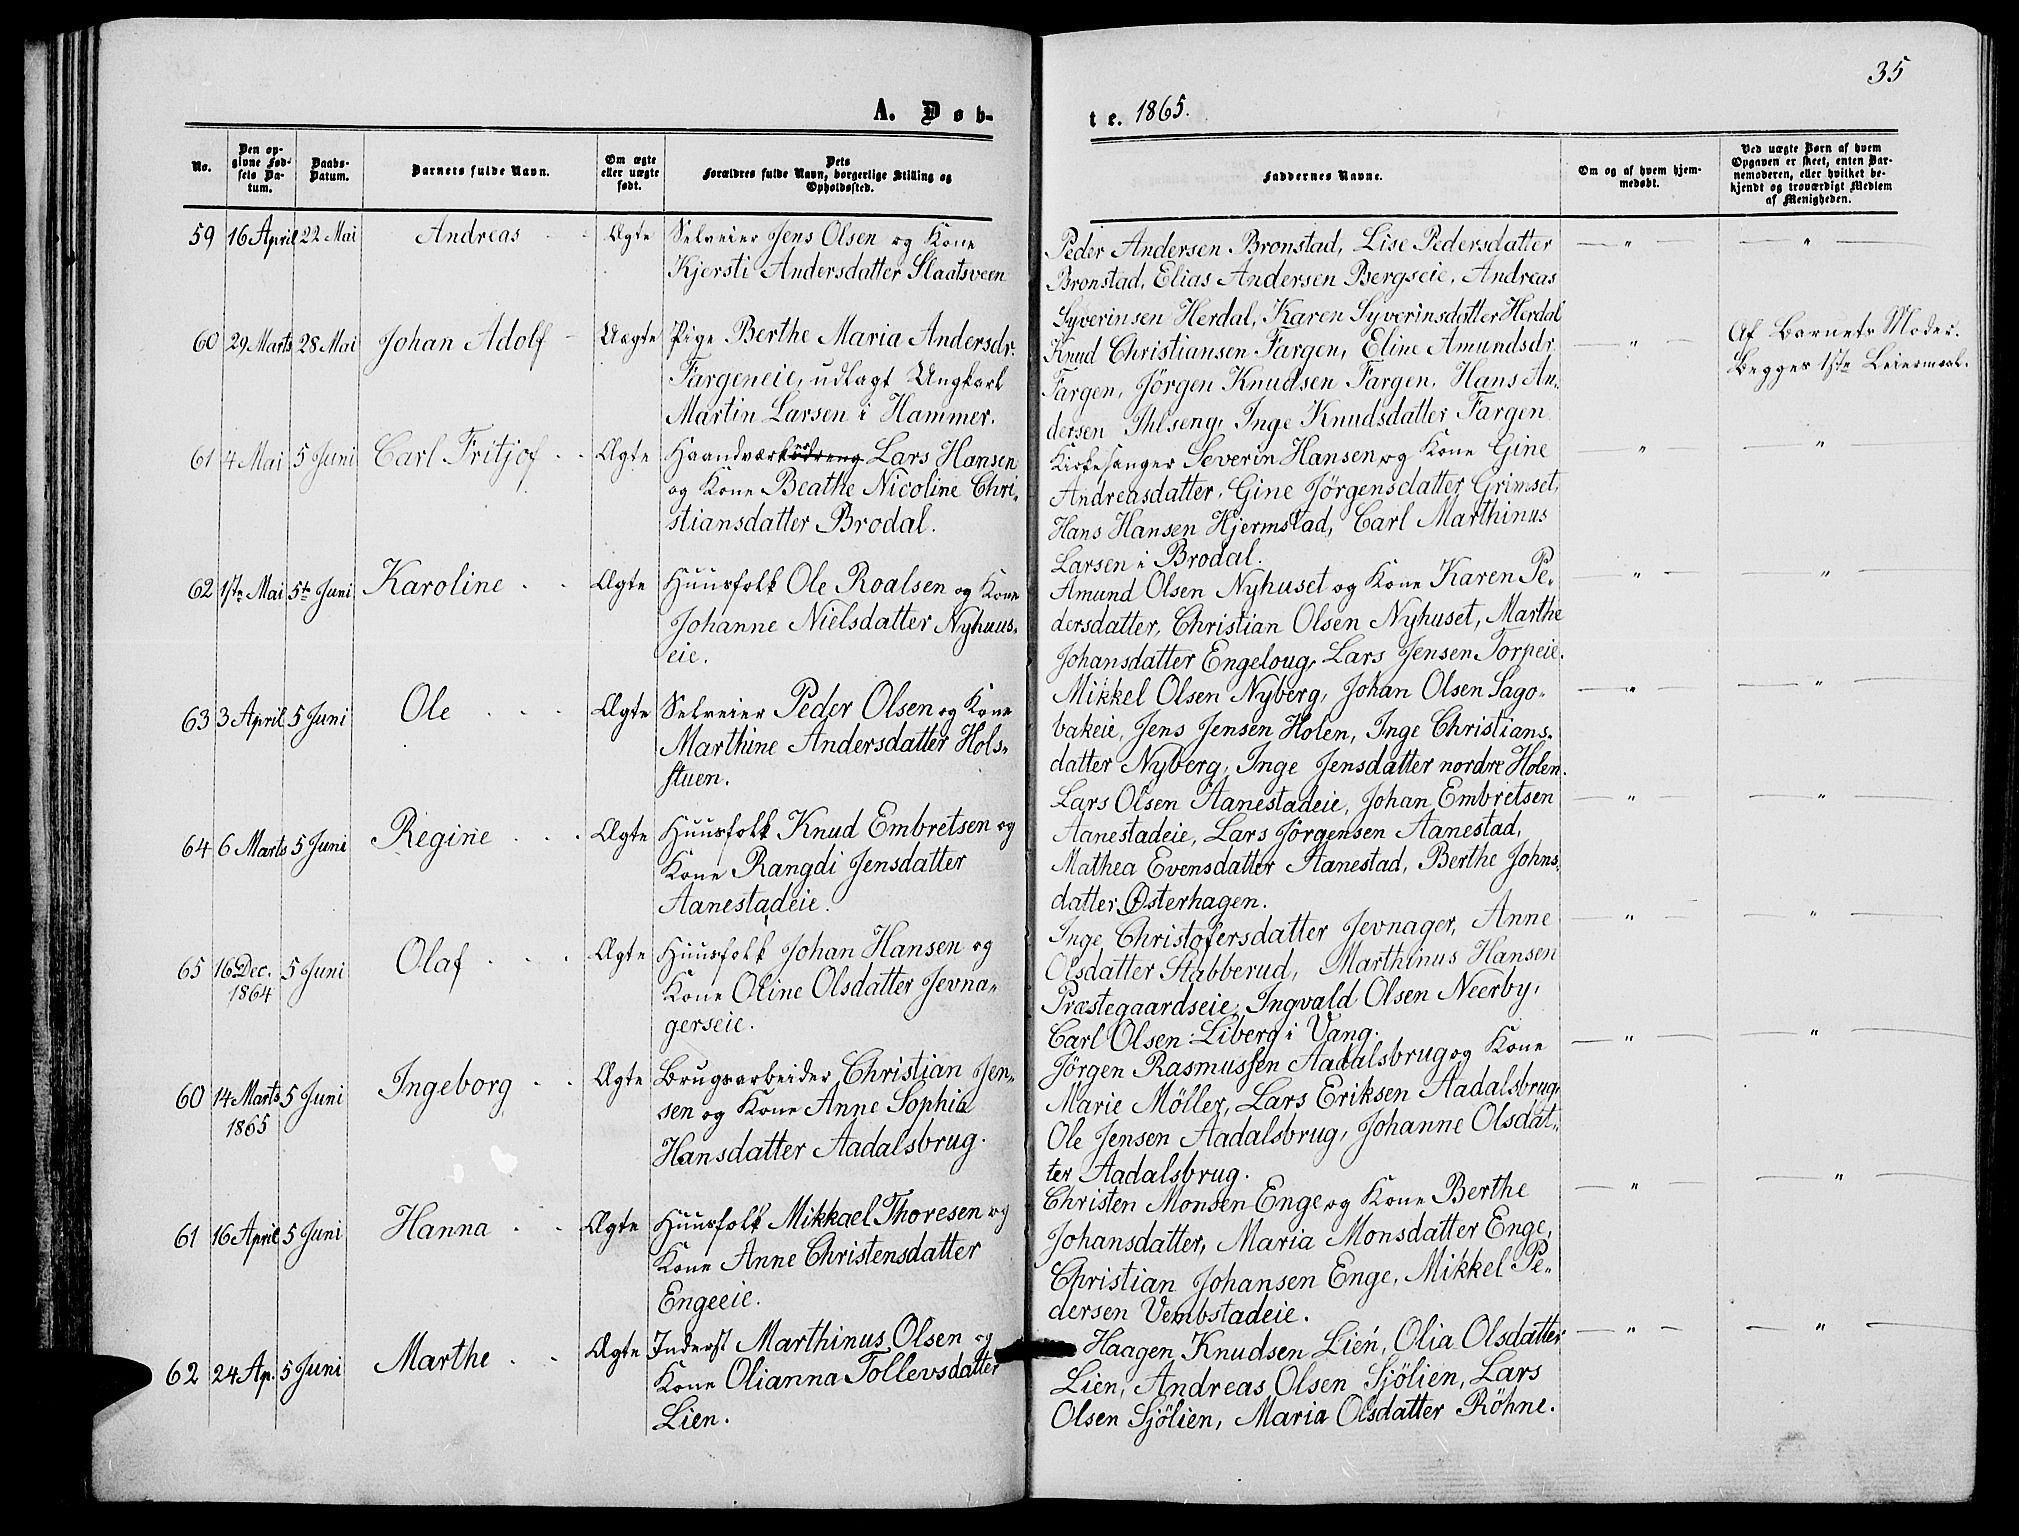 35
A. Døb-
te. 1865.
No.
Den op-
givne Fød-
sels Da-
tum.
Daabs-
Datum.
Barnets fulde Navn.
Om ægte
eller uægte
født.
Dets
Forældres fulde Navn, borgerlige Stilling og
Opholdssted.
Faddernes Navne.
Om og af hvem hjem-
medøbt.
Ved uægte Børn af hvem
Opgaven er skeet, enten Bar-
nemoderen, eller hvilket be-
kjendt og troværdigt Medlem
af Menigheden.
59 16 April 22 Mai Andreas Ægte Selveier Jens Olsen og Kone
Kjersti Andersdatter Slaatsveen
Peder Andersen Bronstad, Lise Pedersdatter — " — — " —
Bronstad, Elias Andersen Bergseie, Andreas
Syverinsen Herdal, Karen Syverinsdatter Herdal
60 29 Marts 28 Mai Johan Adolf Uægte Pige Berthe Maria Andersdr.
Fargeneie, udlagt Ungkarl
Martin Larsen i Hammer.
Knud Christiansen Fargen, Eline Amundsdr. — " —
Fargen, Jörgen Knudsen Fargen, Hans An-
dersen Ihlseng, Inge Knudsdatter Fargen
Af Barnets Moder.
Begges 1ste Leiermaal.
61 4 Mai 5 Juni Carl Fritjof Ægte Haandværksdreng Lars Hansen
og Kone Beathe Nicoline Chri-
stiansdatter Brodal.
Kirkesanger Severin Hansen og Kone Gine — " — — " —
Andreasdatter, Gine Jörgensdatter Grimset,
Hans Hansen Hjermstad, Carl Marthinus
Larsen i Brodal.
62 1ste Mai 5te Juni Karoline Ægte Huusfolk Ole Roalsen og Kone
Johanne Nielsdatter Nyhuus-
eie.
Amund Olsen Nyhuset og Kone Karen Pe- — " — — " —
dersdatter, Christian Olsen Nyhuset, Marthe
Johansdatter Engeloug, Lars Jensen Torpeie.
63 3 April 5 Juni Ole Ægte Selveier Peder Olsen og Kone
Marthine Andersdatter Hols-
stuen.
Mikkel Olsen Nyberg, Johan Olsen Sago- — " — — " —
bakeie, Jens Jensen Holen, Inge Christians-
datter Nyberg, Inge Jensdatter nordre Holen.
64 6 Marts 5 Juni Regine Ægte Huusfolk Knud Embretsen og
Kone Rangdi Jensdatter
Aanestadeie.
Lars Olsen Aanestadeie, Johan Embretsen — " — — " —
Aanestadeie, Lars Jörgensen Aanestad,
Mathea Evensdatter Aanestad, Berthe Johns-
datter Østerhagen.
65 16 Dec. 5 Juni Olaf Ægte Huusfolk Johan Hansen og
1864 Kone Oline Olsdatter Jevna-
gerseie.
Inge Christofersdatter Jevnager, Anne — " — — " —
Olsdatter Stabberud, Marthinus Hansen
Præstegaardseie, Ingvald Olsen Neerby,
Carl Olsen Liberg i Vang.
60 14 Marts 5 Juni Ingeborg Ægte Brugsarbeider Christian Jen-
1865 sen og Kone Anne Sophia
Hansdatter Aadalsbrug.
Jörgen Rasmussen Aadalsbrug og Kone — " — — " —
Marie Möller, Lars Eriksen Aadalsbrug,
Ole Jensen Aadalsbrug, Johanne Olsdat-
ter Aadalsbrug.
61 16 April 5 Juni Hanna Ægte Huusfolk Mikkael Thoresen og
Kone Anne Christensdatter
Engeeie.
Christen Monsen Enge og Kone Berthe — " — — " —
Johansdatter, Maria Monsdatter Enge,
Christian Johansen Enge, Mikkel Pe-
dersen Vembstadeie.
62 24 Ap. 5 Juni Marthe Ægte Inderst Marthinus Olsen og
Kone Olianna Tollevsdatter
Lien.
Haagen Knudsen Lien, Olia Olsdatter — " — — " —
Lien, Andreas Olsen Sjölien, Lars
Olsen Sjölien, Maria Olsdatter Röhne.